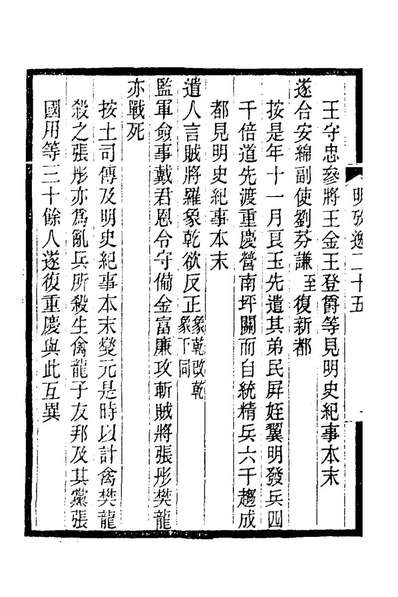 明攷逸二十五
王守忠參將王金王登爵等見明史紀事本末
遂合安綿副使劉芬謙至復新都
按是年十一月良玉先遣其弟民屏姪翼明發兵四
千倍道先渡重慶營南坪關而自統精兵六千趨成
都見明史紀事本末
遣人言賊將羅象乾欲反正象乾改乾象下同
監軍僉事戴君恩令守備金富廉攻斬賊將張彤樊龍
亦戰死
按土司傳及明史紀事本末變元是時以計禽樊龍
殺之張彤亦為亂兵所殺生禽龍子友邦及其黨張
國用等三十餘人遂復重慶與此互異